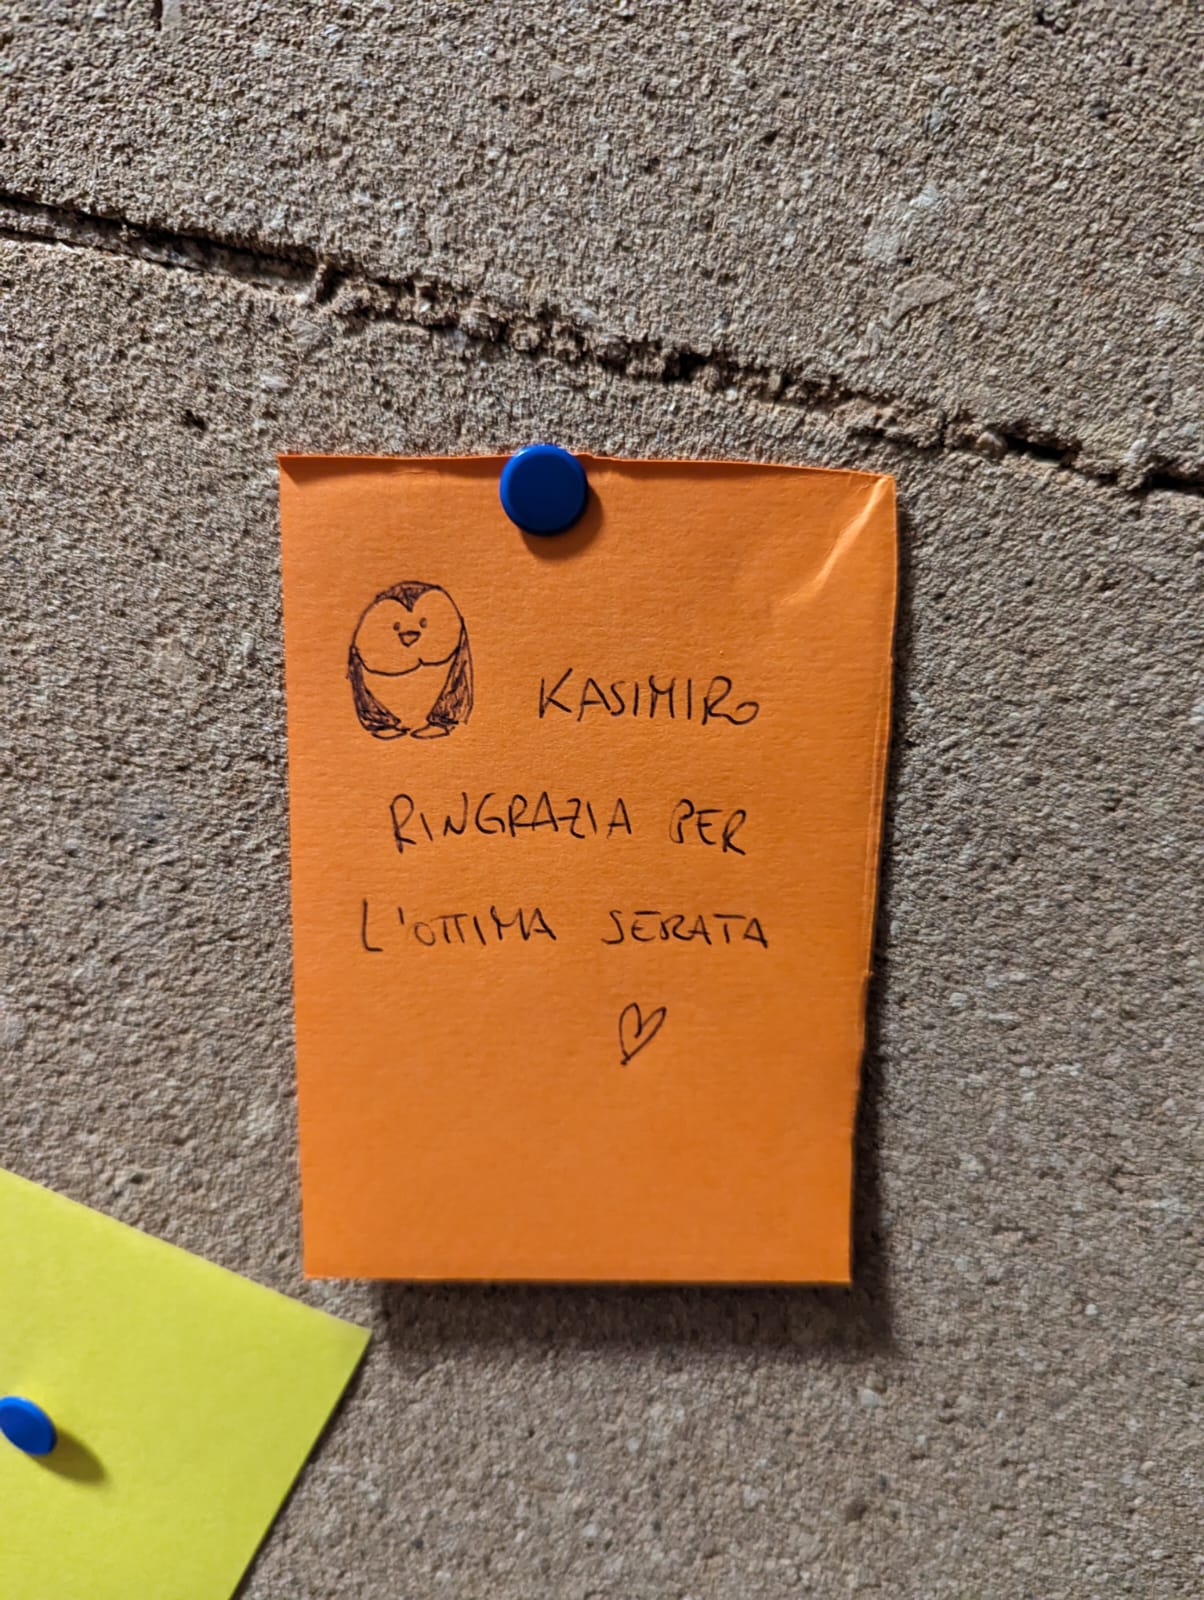 KASIMIRO
RINGRAZIA PER
L'OTTIMA SERATA